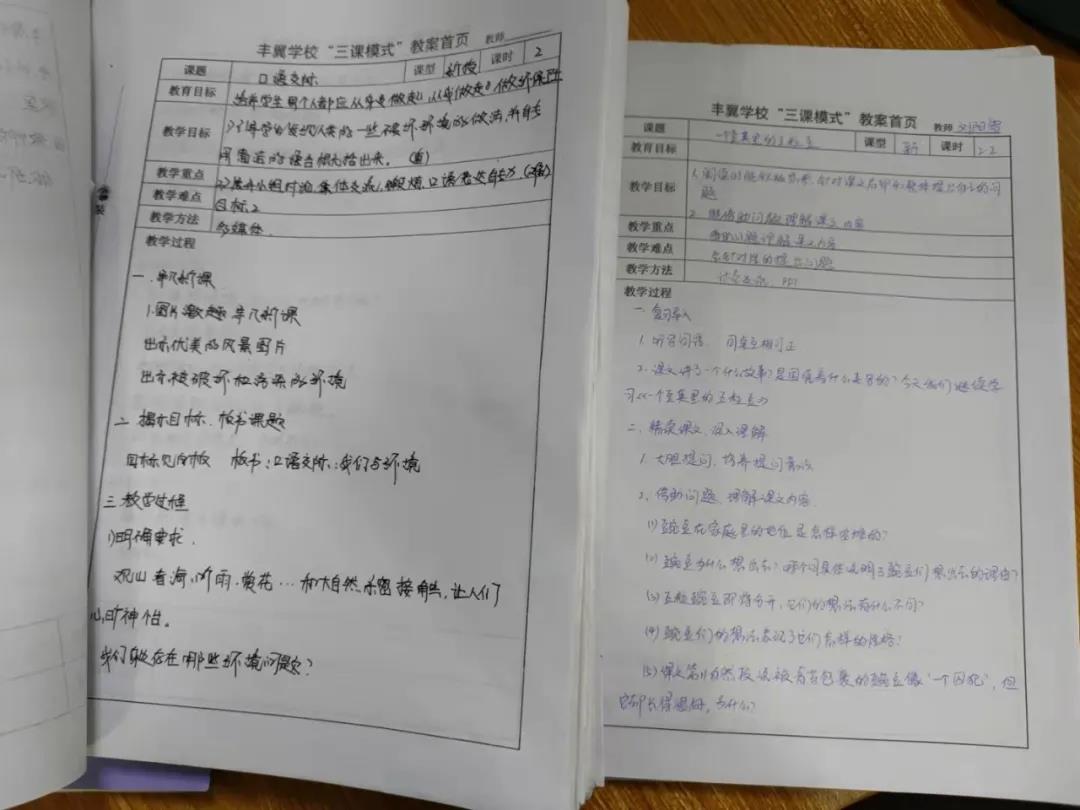 丰翼学校“三课模式”教案首页 教师
课题 口语交际 课型 新授 课时 2
教育目标 培养学生每个人都应从小事做起，从我做起，做环保
教学目标 了解学的发现人类的一些破坏环境的做法，并能
用普通的语言概括出来。（重）
教学重点
教学难点 小组讨论，集体交流，锻炼口语表达能力。（难）
目标2
教学方法 多媒体
教学过程
一、导入新课
1.图片激趣导入新课
出示优美的风景图片
出示被破坏和污染的环境
二、揭示目标、板书课题
目标见白板 板书：口语交际：我们与环境
三、教学过程
1)明确要求.
观山看海、听雨、赏花…和大自然亲密接触，让人们
心旷神怡。
我们身边存在哪些环境问题？
装
丰翼学校“三课模式”教案首页 教师
课题 一个豆荚里的五粒豆 课型 新 课时 2-2
教育目标
教学目标 1.阅读时能积极思考，针对课文局部和整体提出自己的问
题
2.能借助问题理解课文内容
教学重点 借助问题理解课文内容
教学难点 有针对性的提出问题
教学方法 讨论交流、PPT
教学过程
一、复习导入
1.听写词语，同桌互相订正
2.课文讲了一个什么故事？是围绕着什么来写的？今天我们继续学
习《一个豆荚里的五粒豆》
二、精读课文、深入理解
1.大胆提问、培养提问意识
2.借助问题、理解课文内容
(1)豌豆在家庭里的地位是怎样安排的？
(2)豌豆为什么想出去？哪个词具体说明了豌豆们想出去的理由？
(3)五粒豌豆即将分开，它们的想法有什么不同？
(4)豌豆们的想法表现了它们怎样的性格？
(5)课文第11自然段说被青苔包裹的豌豆像“一个囚犯”，但
它却长得很好，为什么？